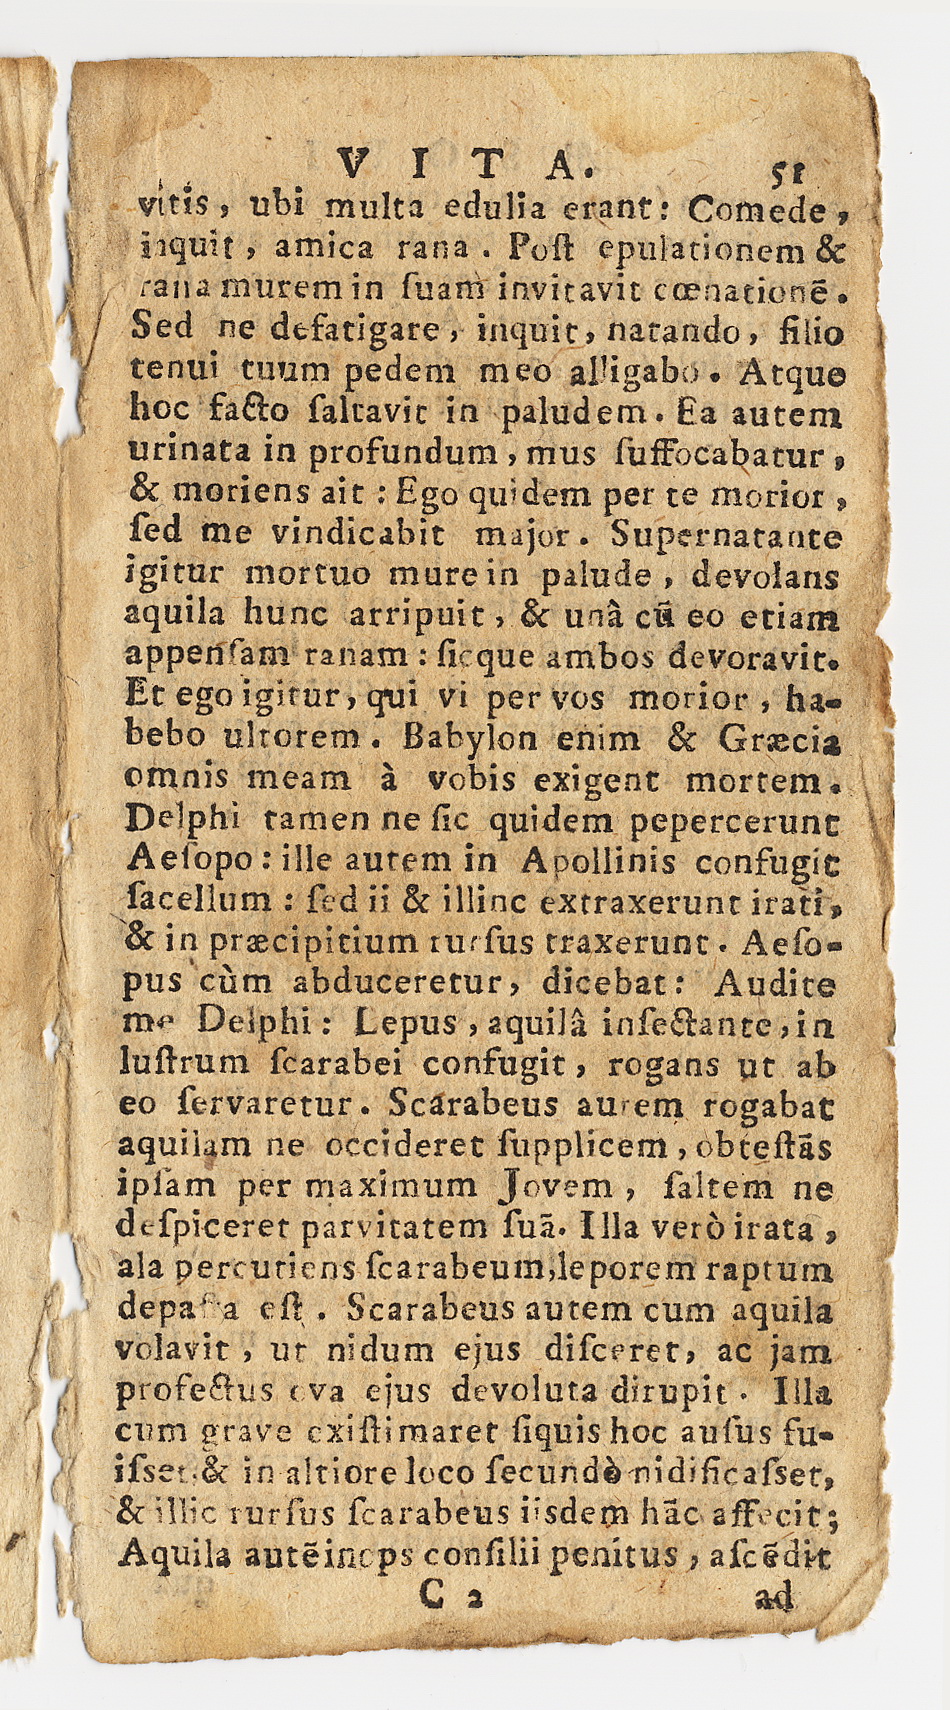 VITA. 51
vitis, ubi multa edulia erant: Comede,
inquit, amica rana. Poſt epulationem &
rana murem in ſuam invitavit cœnationē.
Sed ne defatigare, inquit, natando, filio
tenui tuum pedem meo alligabo. Atque
hoc facto ſaltavit in paludem. Ea autem
urinata in profundum, mus ſuffocabatur,
& moriens ait: Ego quidem per te morior,
ſed me vindicabit major. Supernatante
igitur mortuo mure in palude, devolans
aquila hunc arripuit, & unâ cū eo etiam
appenſam ranam: ſicque ambos devoravit.
Et ego igitur, qui vi per vos morior, ha-
bebo ultorem. Babylon enim & Græcia
omnis meam à vobis exigent mortem.
Delphi tamen ne ſic quidem pepercerunt
Aeſopo: ille autem in Apollinis confugit
ſacellum: ſed ii & illinc extraxerunt irati,
& in præcipitium rurſus traxerunt. Aeſo-
pus cùm abduceretur, dicebat: Audite
me Delphi: Lepus, aquilâ inſectante, in
luſtrum ſcarabei confugit, rogans ut ab
eo ſervaretur. Scarabeus autem rogabat
aquilam ne occideret ſupplicem, obteſtās
ipſam per maximum Jovem, ſaltem ne
deſpiceret parvitatem ſuā. Illa verò irata,
ala percutiens ſcarabeum, leporem raptum
depaſta eſt. Scarabeus autem cum aquila
volavit, ut nidum ejus diſceret, ac jam
profectus ova ejus devoluta dirupit. Illa
cum grave exiſtimaret ſiquis hoc auſus fu-
iſſet, & in altiore loco ſecundò nidificaſſet,
& illic rurſus ſcarabeus iiſdem hāc affecit;
Aquila autē inops conſilii penitus, aſcēdit
C 2 ad